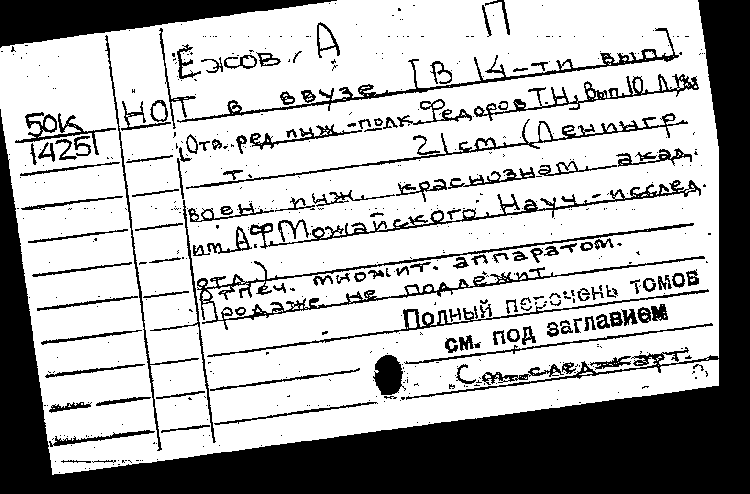 П
Ежов, А
50К
14251
НОТ в ввузе. [В 14-ти вып.].
[Отв. ред. инж.-полк. Федоров Т.Н.] Вып. 10. Л.,
т. 21 см. (Ленингр.
воен. инж. краснознам. акад.
им. А.Ф. Можайского. Науч.-исслед.
отд.).
Отпеч. множит. аппаратом.
Продаже не подлежит.
Полный перечень томов
см. под заглавием
См. след. карт.